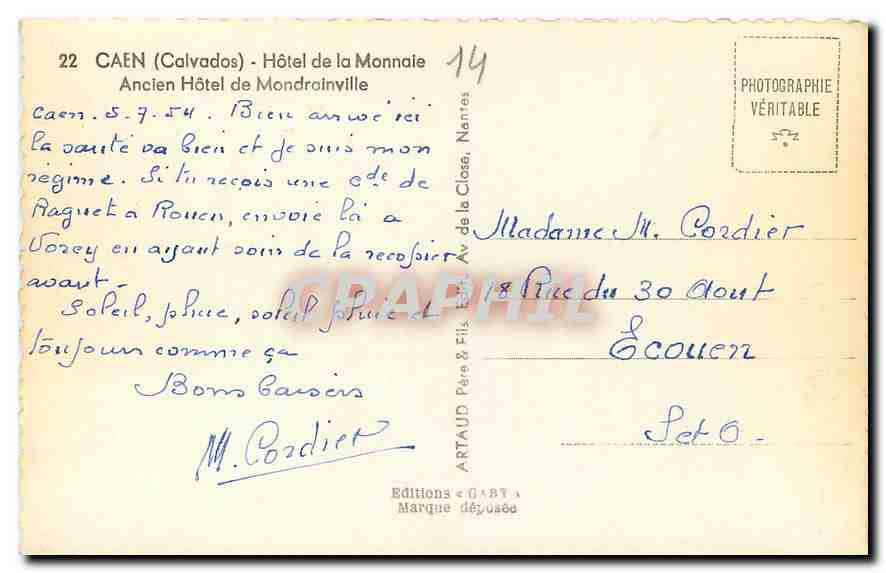 22 CAEN (Calvados) - Hôtel de la Monnaie
Ancien Hôtel de Mondrainville
14
PHOTOGRAPHIE
VÉRITABLE
Caen. 5.7.54. Bien arrivé ici
la santé va bien et je suis mon
régime. Si tu reçois une cde de
Raguet à Rouen, envoie là a
Vorey en ayant soin de la recopier
avant.
Soleil, pluie, soleil pluie et
toujours comme ça
Bons baisers
M. Cordier
ARTAUD Père & Fils Edit. Av. de la Close, Nantes
Madame M. Cordier
18 Rue du 30 Aout
Ecouen
S et O.
Editions « GABY »
Marque déposée
CPAPHIL.COM